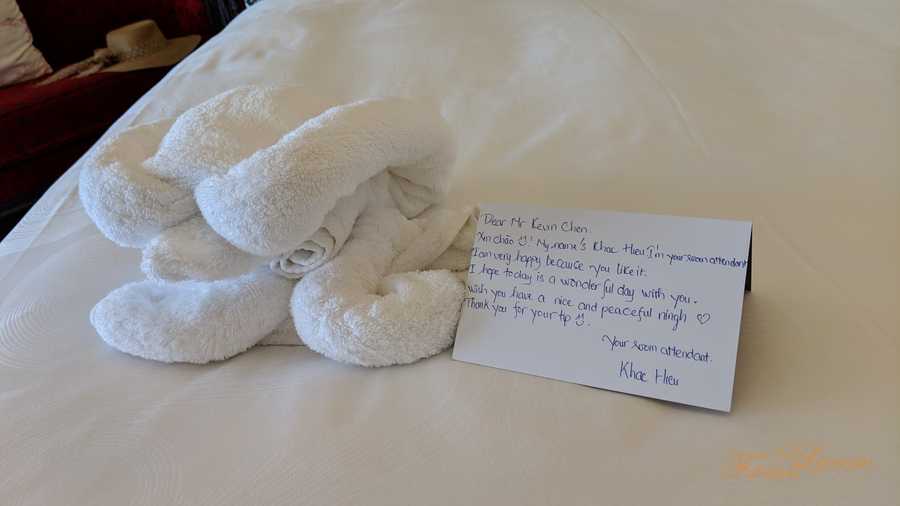 Dear Mr Kevin Chen.
Xin chào ! My name's Khac Hieu I'm your room attendant
I am very happy because you like it.
I hope today is a wonderful day with you.
wish you have a nice and peaceful ningh
Thank you for your tip
Your room attendant.
Khac Hieu